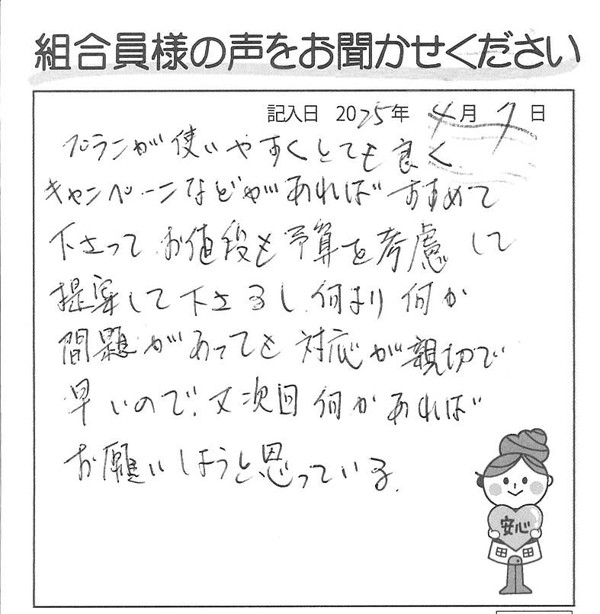 組合員様の声をお聞かせください
記入日 2025年 4月 7日
プランが使いやすくとても良く
キャンペーンなどがあればすすめて
下さって お値段も予算を考慮して
提案して下さるし、何より何か
問題があっても対応が親切で
早いので、又次回何かあれば
お願いしようと思っている。
安心